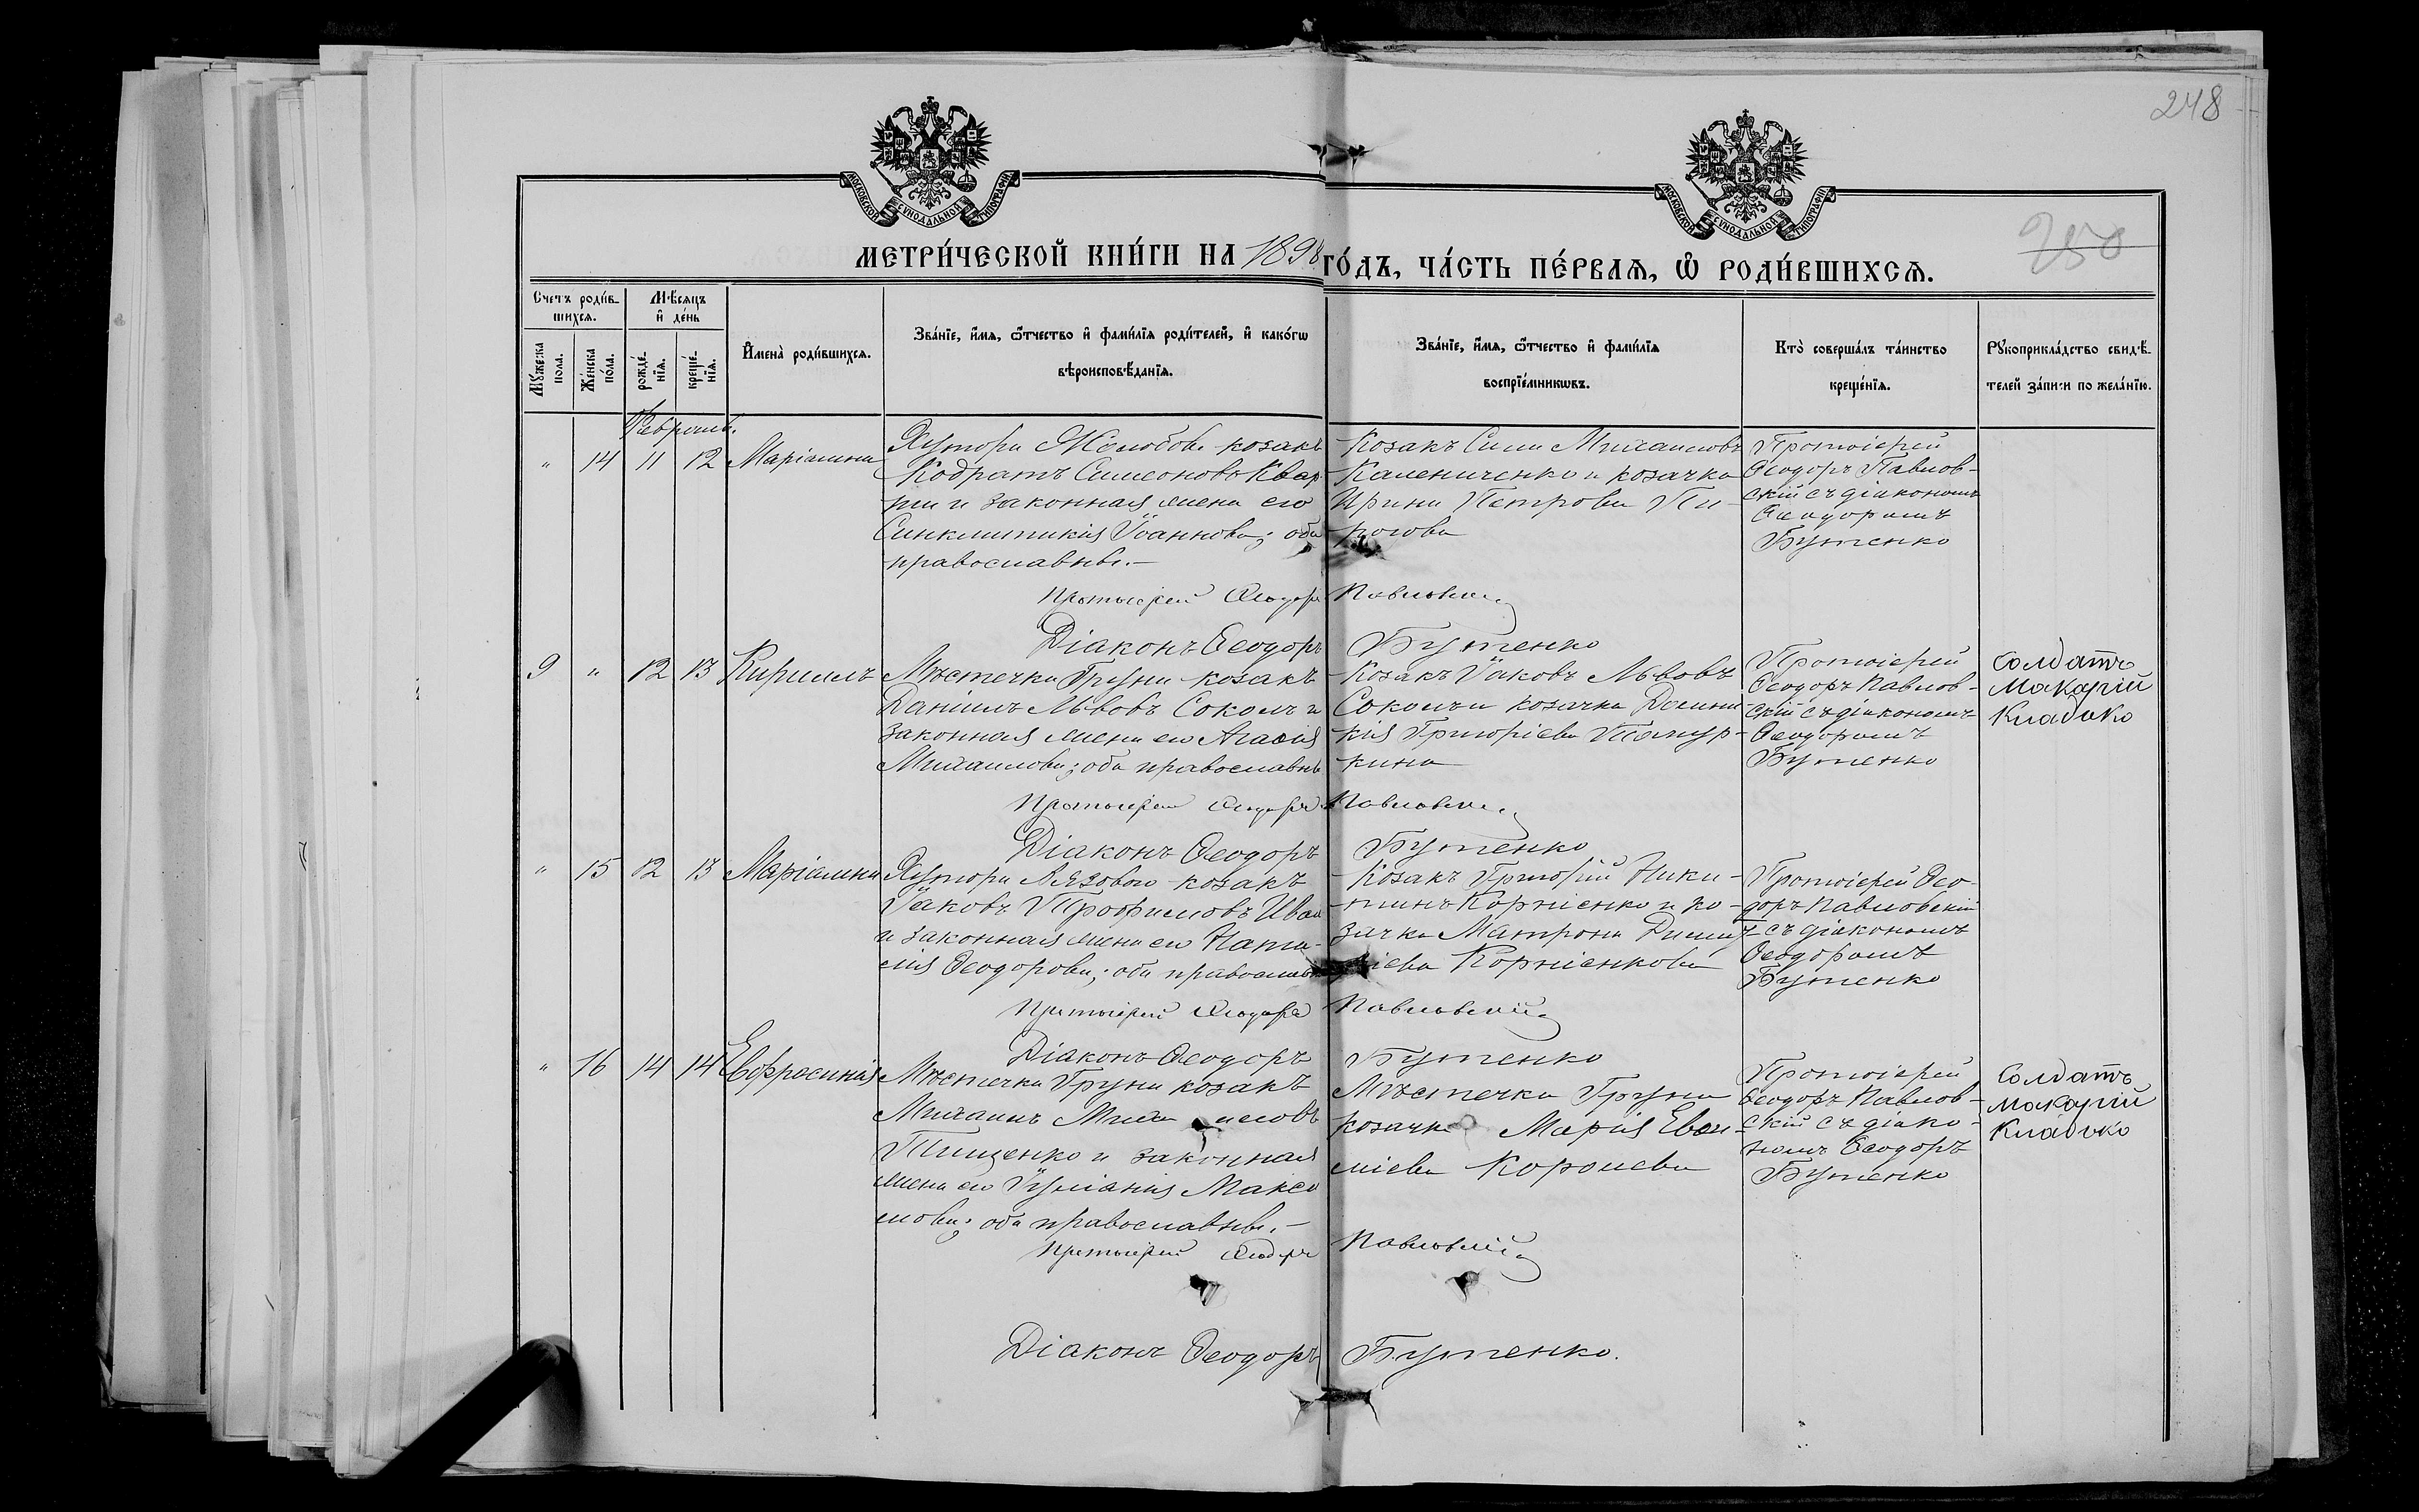 248
250
МОСКОВСКОЙ СѴНОДАЛЬНОЙ ТИПОГРАФІИ
МОСКОВСКОЙ СѴНОДАЛЬНОЙ ТИПОГРАФІИ
МЕТРИ́ЧЕСКОЙ КНИ́ГИ НА 1898 ГО́ДЪ, ЧА́СТЬ ПЕ́РВАѦ, Ѽ РОДИ́ВШИХСѦ.
Счетъ роди́в-
шихсѧ.
Мꙋжеска
пола.
Же́нска
по́ла.
Мѣ́сѧцъ
и҆ де́нь
рожде́-
нїѧ.
креще́-
нїѧ.
И҆мена̀ роди́вшихсѧ.
Зва́нїе, и҆́мѧ, ѻ҆́тчество и҆ фами́лїѧ роди́телей, и҆ како́гѡ
вѣроисповѣ́данїѧ.
Зва́нїе, и҆́мѧ, ѻ҆́тчество и҆ фами́лїѧ
воспрїе́мникѡвъ.
Кто̀ совершалъ та́инство
креще́нїѧ.
Рꙋкоприкла́дство свидѣ́-
телей за́писи по жела́нїю.
Февраль.
" 14 11 12 Маріамна
Хутора Жолобова козакъ
Кодратъ Симеоновъ Квар
ша и законная жена его
Синклитикія Іоаннова; оба
православные.—
Козакъ Сила Михаиловъ
Калениченко и козачка
Ирина Петрова Пи-
рогова
Протоіерей
Ѳеодоръ Павлов-
скій съ діакономъ
Ѳеодоромъ
Бутенко
Протоіерей Ѳеодоръ Павловскій
Діаконъ Ѳеодоръ Бутенко
9 " 12 13 Кириллъ
Мѣстечка Груни козакъ
Даніилъ Львовъ Соколъ и
законная жена его Агаѳія
Михаилова; оба православны
Козакъ Іаковъ Львовъ
Соколъ и козачка Домни
кія Григоріева
кина
Протоіерей
Ѳеодоръ Павлов-
скій съ діакономъ
Ѳеодоромъ
Бутенко
Солдатъ
Макарій
Кладько
Протоіерей Ѳеодоръ Павловскій
Діаконъ Ѳеодоръ Бутенко
" 15 12 13 Маріамна
Хутора Лязового козакъ
Іаковъ Трофимовъ Иван
и законная жена его Ната-
лія Ѳеодорова; оба православны
Козакъ Григорій Ники-
тинъ Корніенко и ко-
зачка Матрона Димит
ріева Корніенкова
Протоіерей Ѳео-
доръ Павловскій
съ діакономъ
Ѳеодоромъ
Бутенко
Протоіерей Ѳеодоръ Павловскій
Діаконъ Ѳеодоръ Бутенко
" 16 14 14 Евфросинія
Мѣстечка Груни козакъ
Михаилъ Михаиловъ
Тищенко и законная
жена его Іуліанія Макси
мова; оба православные.—
Мѣстечка Груни
козачка Марія Еван-
ліева Королева
Протоіерей
Ѳеодоръ Павлов-
скій съ діако-
номъ Ѳеодоръ
Бутенко
Солдатъ
Макарій
Кладько
Протоіерей Ѳеодоръ Павловскій
Діаконъ Ѳеодоръ Бутенко.